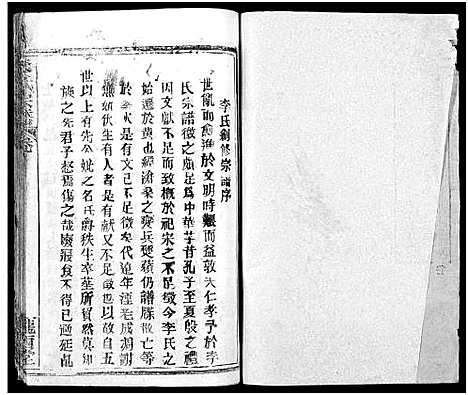 李氏創修宗譜序
世亂而愈進於文明時艱而益敦夫仁孝予於李
氏宗譜徵之頗足爲中華手昔孔子至夏殷之禮
因文獻不足而致慨於祀宋之不足徵今李氏之
始遷於黄也經滄桑之變兵燹頻仍譜牒散亡等
於秦火是有文已不足徵矣代遠年湮老成凋謝
有如伏生有人者是有獻又不足徵也以故自五
世以上有先公妣之名氏爵秩生卒塋所貿然莫知
族之先君子惄焉傷之哉廢寢食不得已適延乩